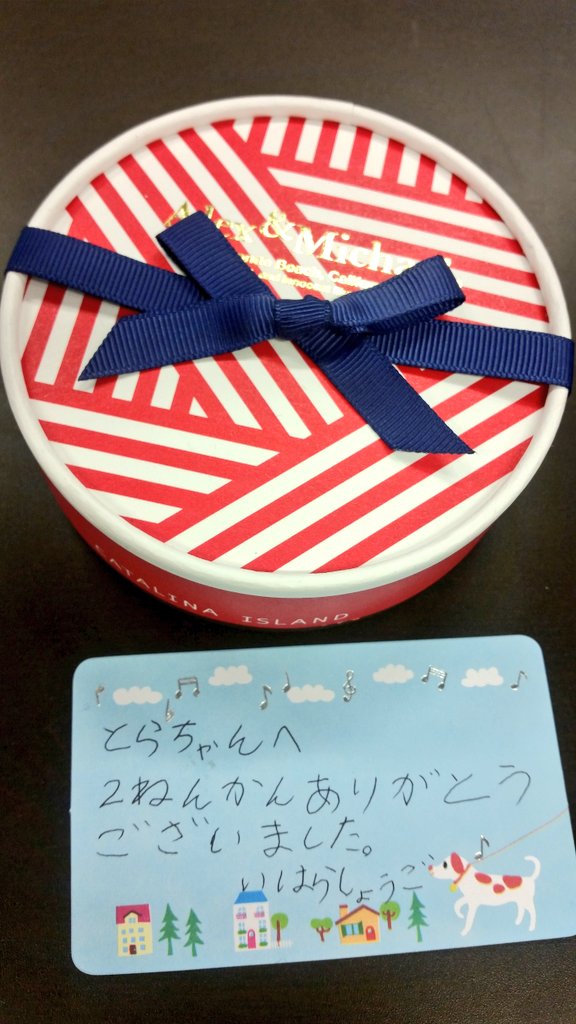 Alex & Micha
CATALINA ISLAND.
とらちゃんへ
2ねんかんありがとう
ございました。
いはらしょうご